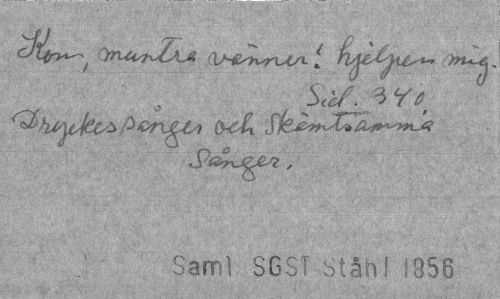 Kom, muntra vänner! hjelpen mig.
Sid. 340.
Dryckessånger och Skämtsamma
Sånger.
Saml SGST Ståhl 1856